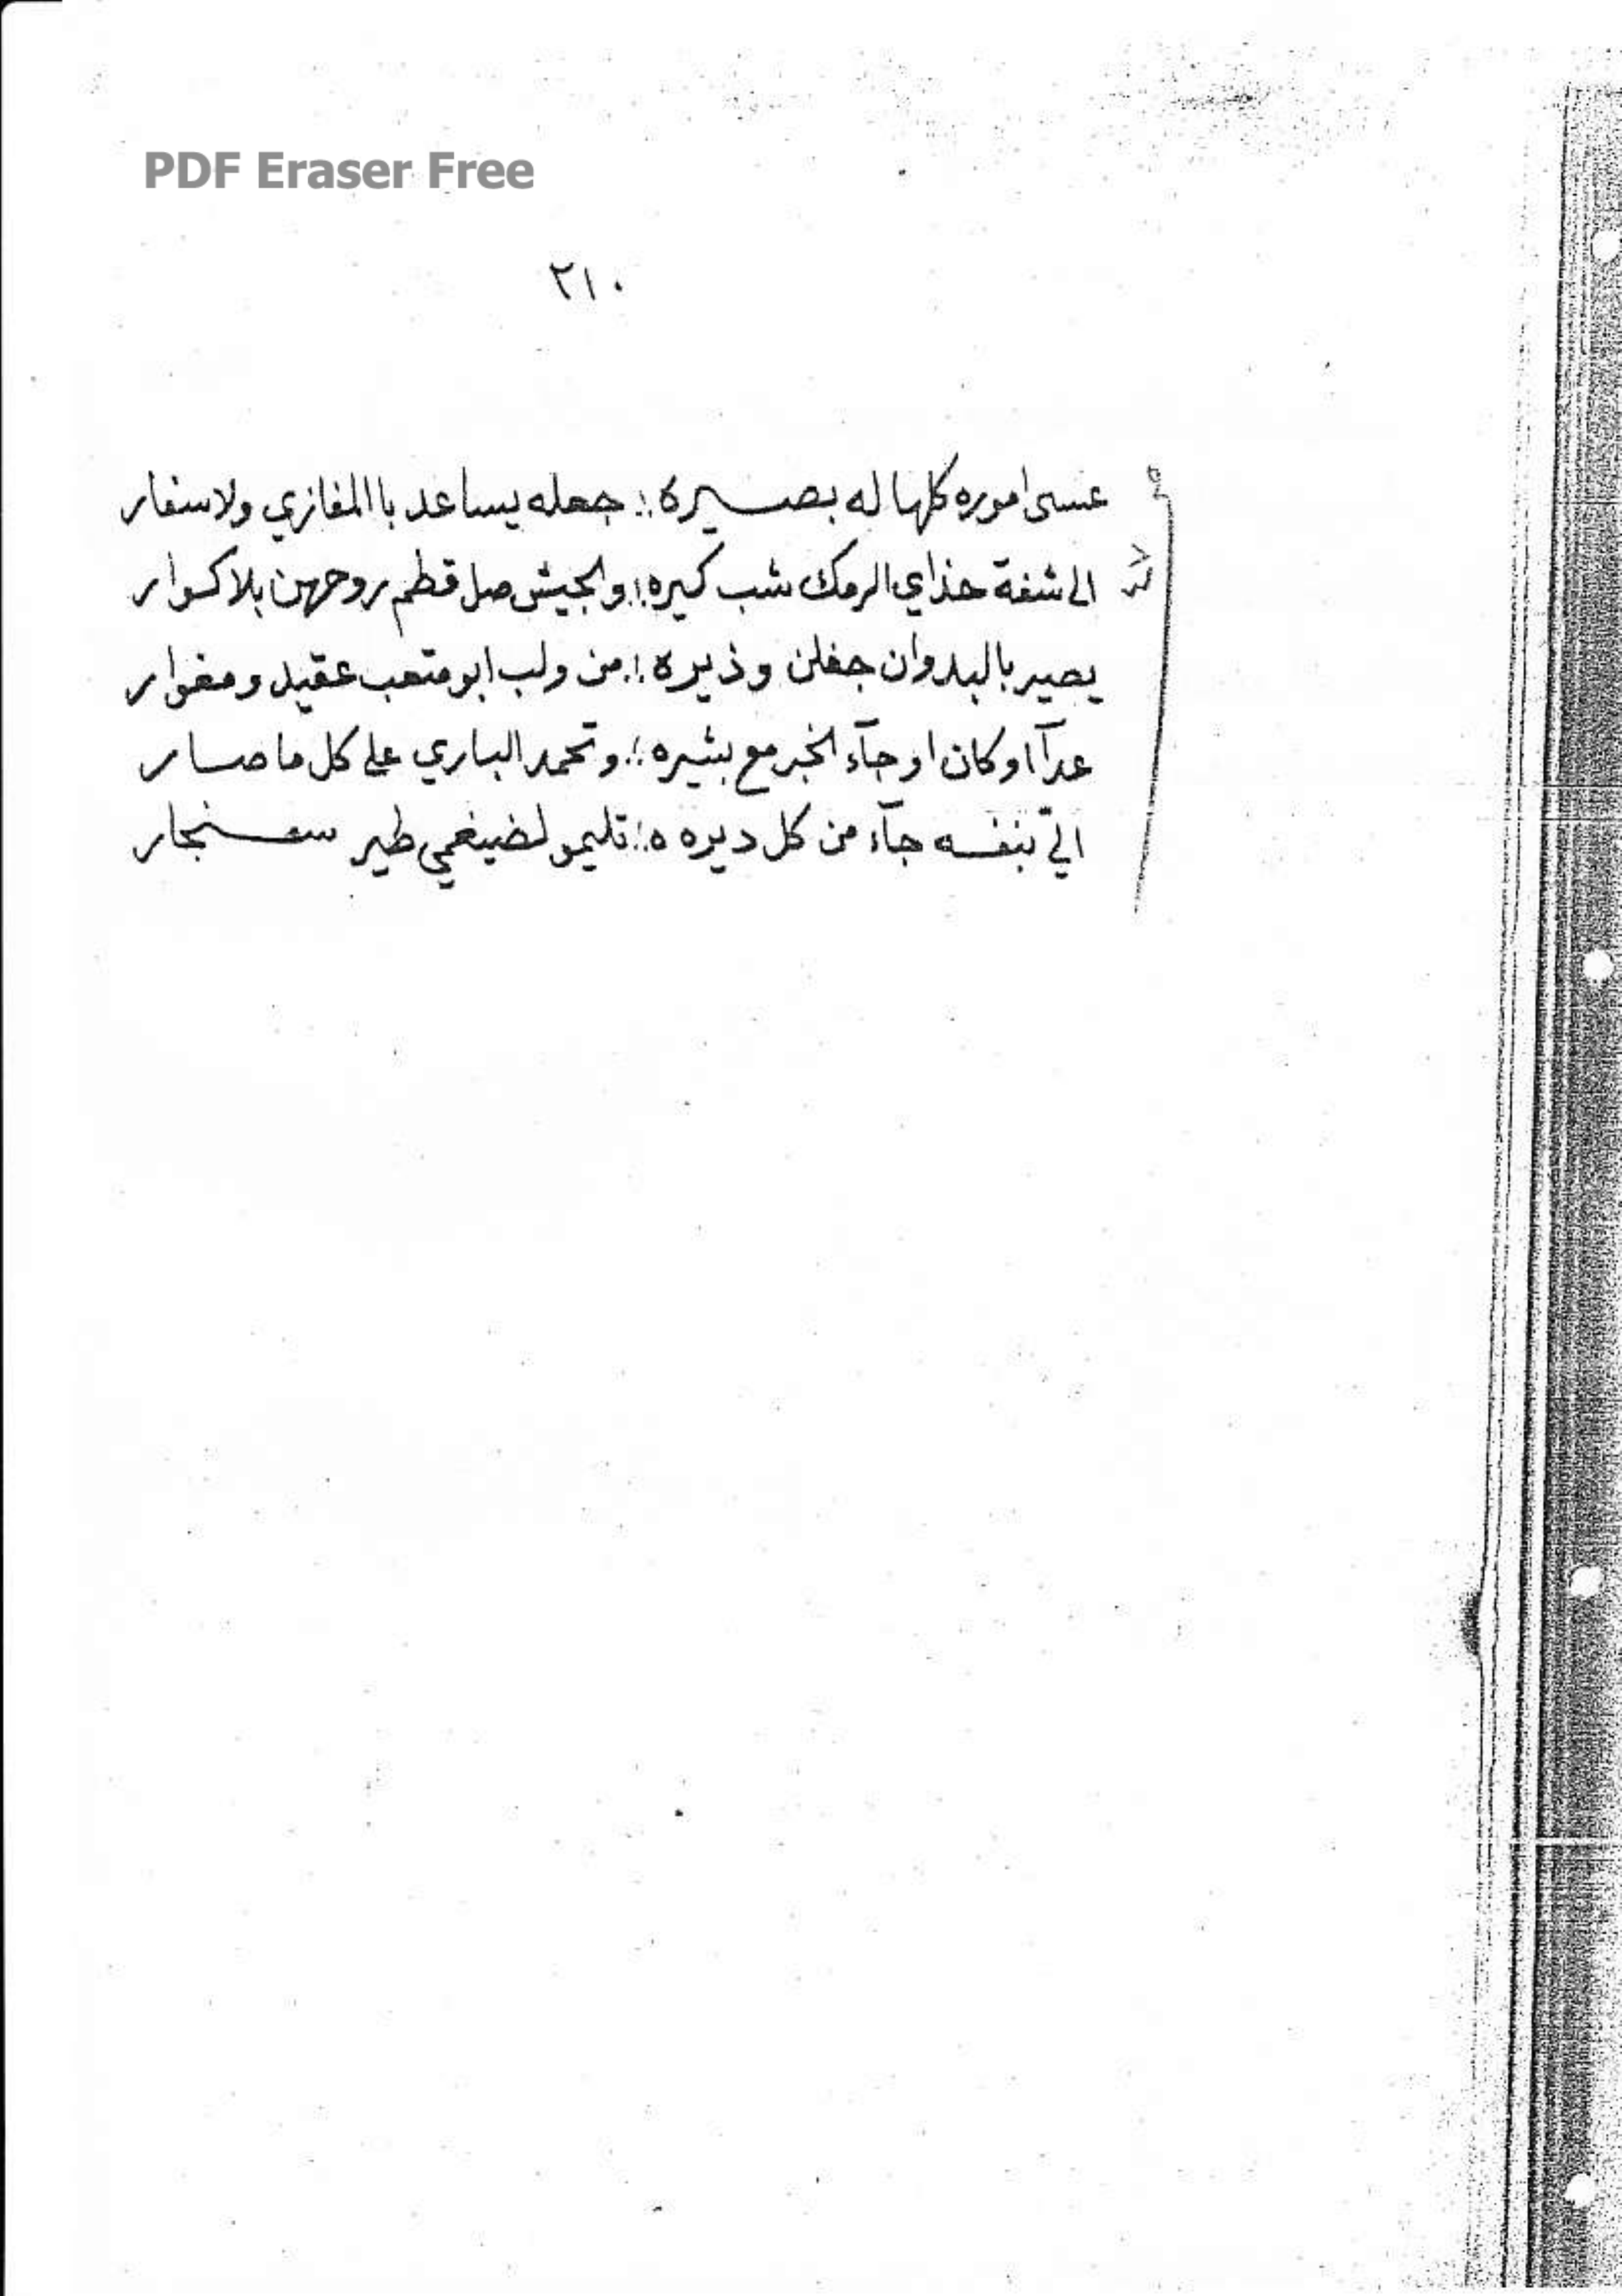 PDF Eraser Free
٢١٠
عسى اموره كلها له بصيره ؛ جعله يساعد باالمغازي ولاسفار
الى شفة حذاي الرمك شب كيره ؛ والجيش صل قطم روحهن بلاكوار
يصير بالبدوان جفلن وذيره ؛ من ولب ابو متعب عقيد ومغوار
عدآ اوكان اوجآء الخبر مع بشيره ؛ وتحمد الباري على كل ما صار
الي بنفسه جآء من كل ديره ه ؛ تليمو لضيغمي طير سنجار